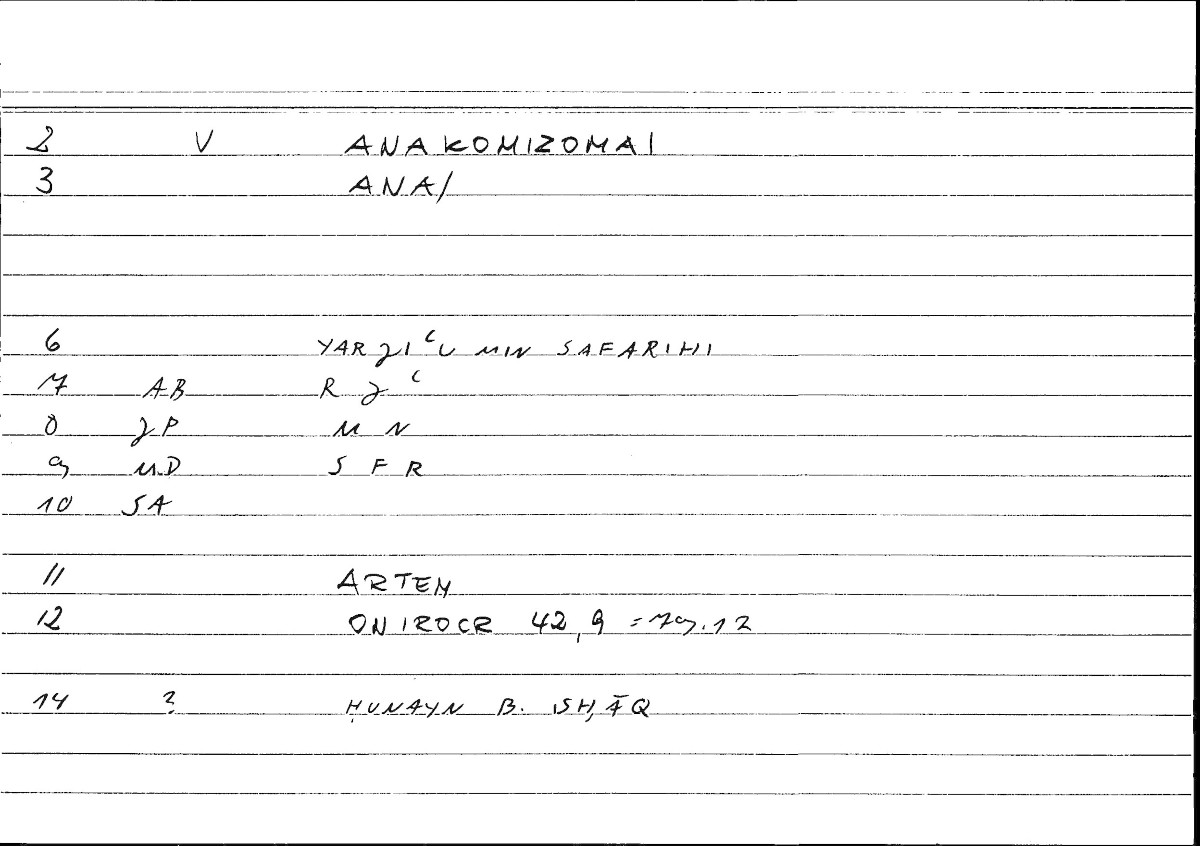 2 V ANAKOMIZOMAI
3 ANA/
6 YARJIʿU MIN SAFARIHI
7 AB R J ʿ
8 JP M N
9 MD S F R
10 SA
11 ARTEM
12 ONIROCR 42,9 = 79.12
14 ? ḤUNAYN B. ISḤĀQ